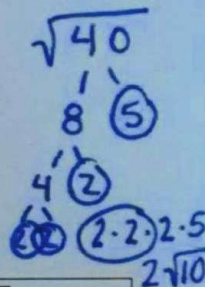 √40
8 5
4 2
2 2 2·2·2·5
2√10